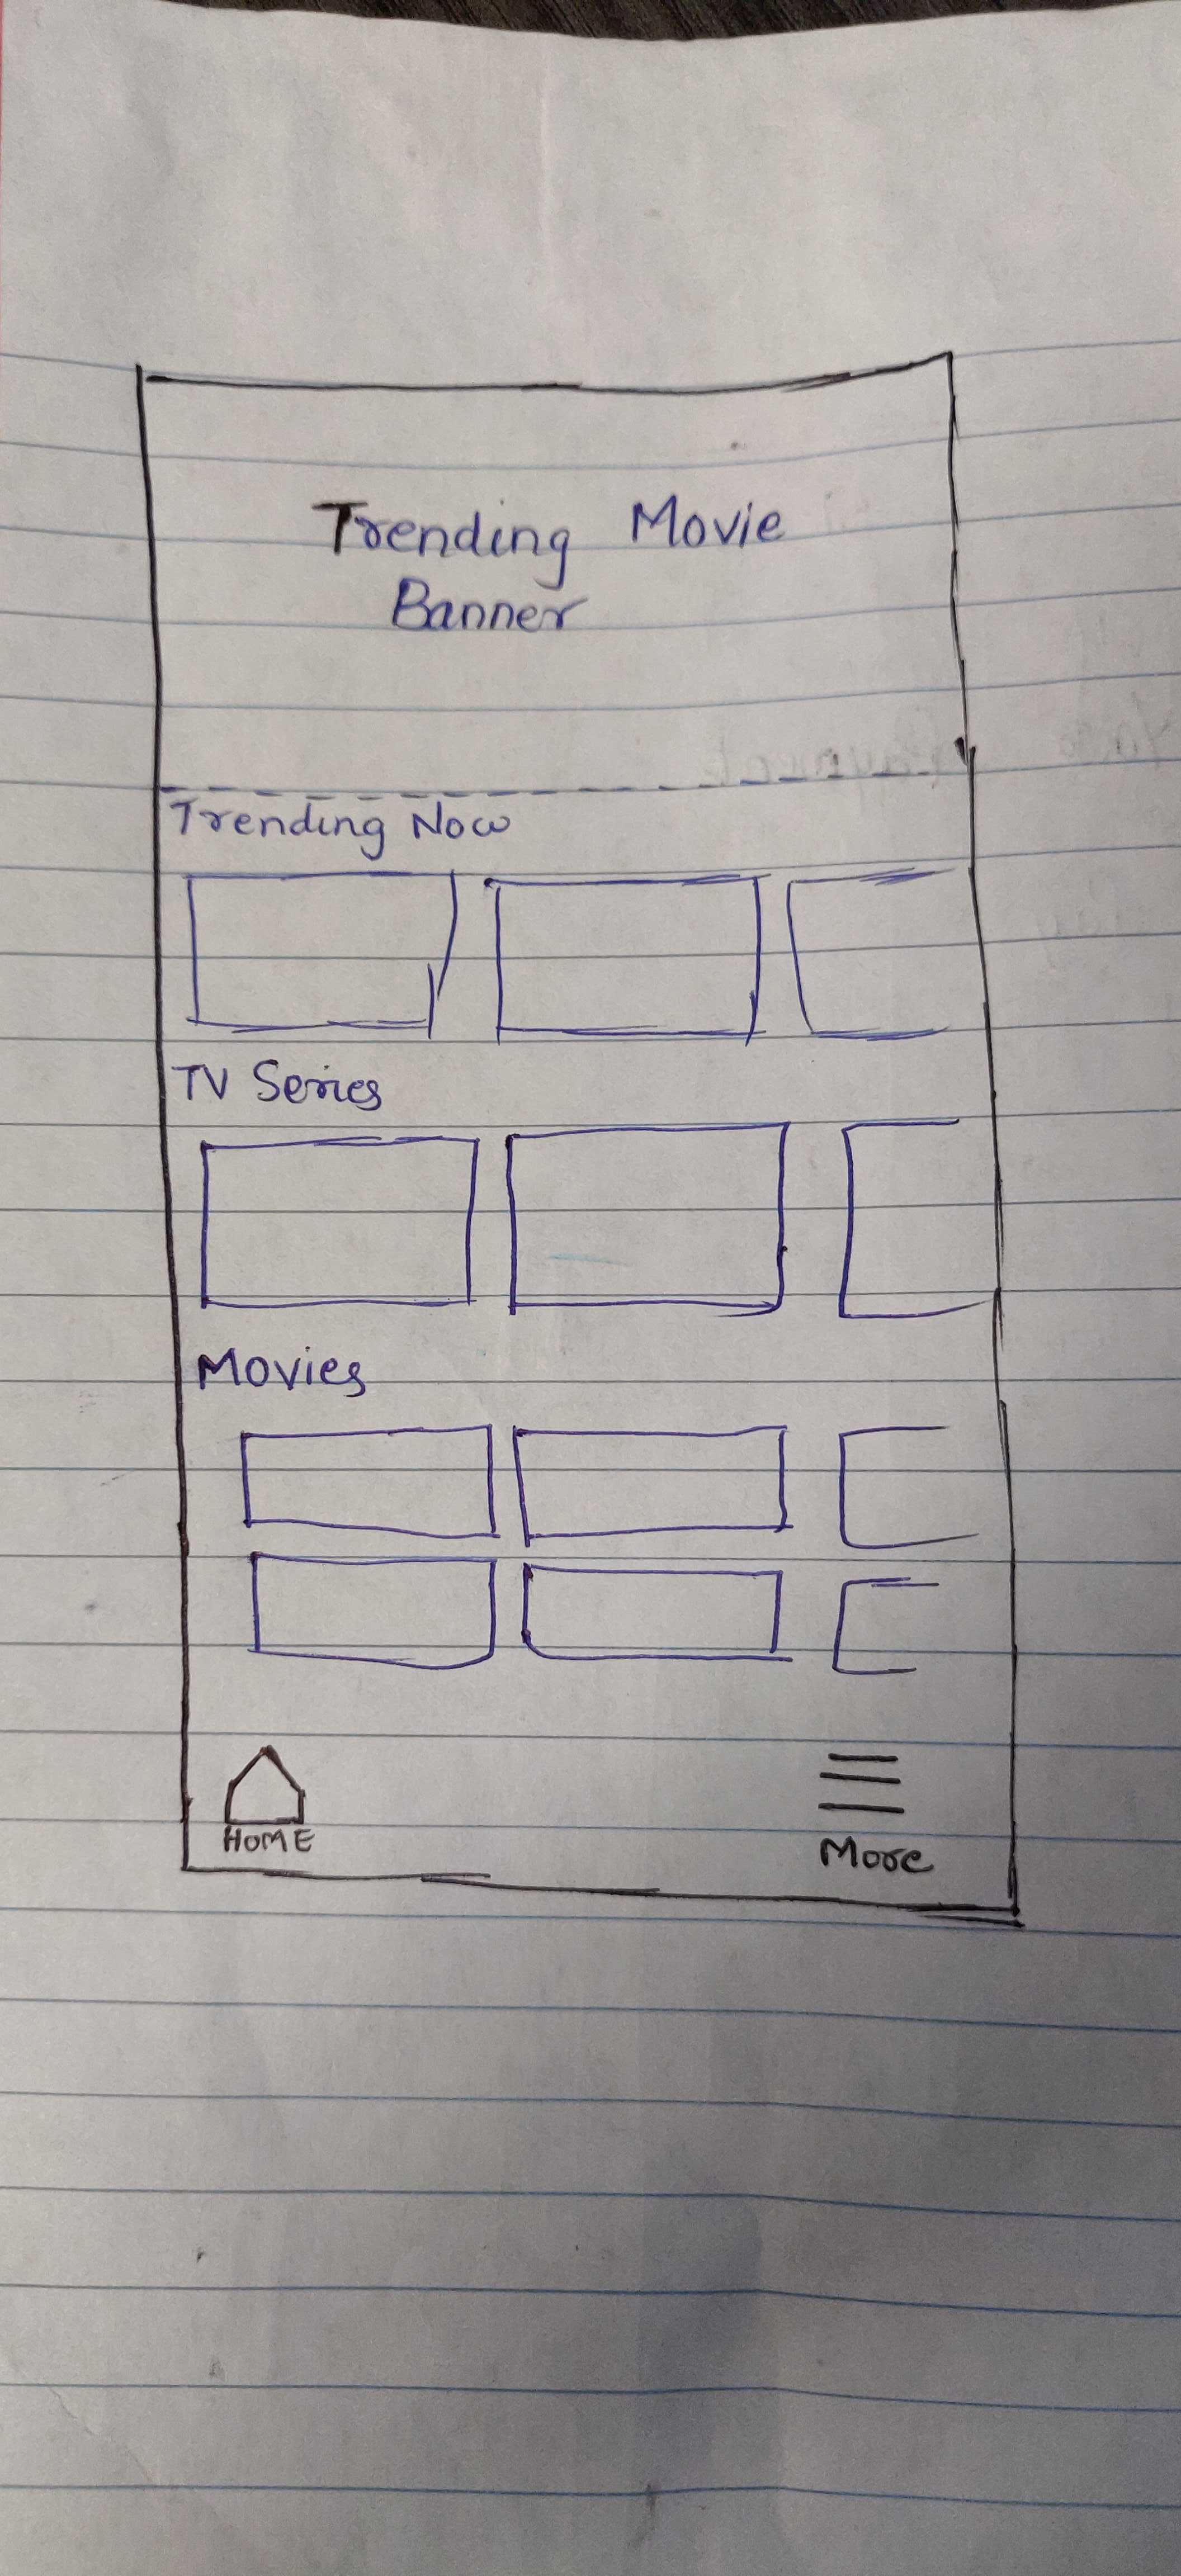 Trending Movie
Banner
Trending Now
TV Series
Movies
HOME
More